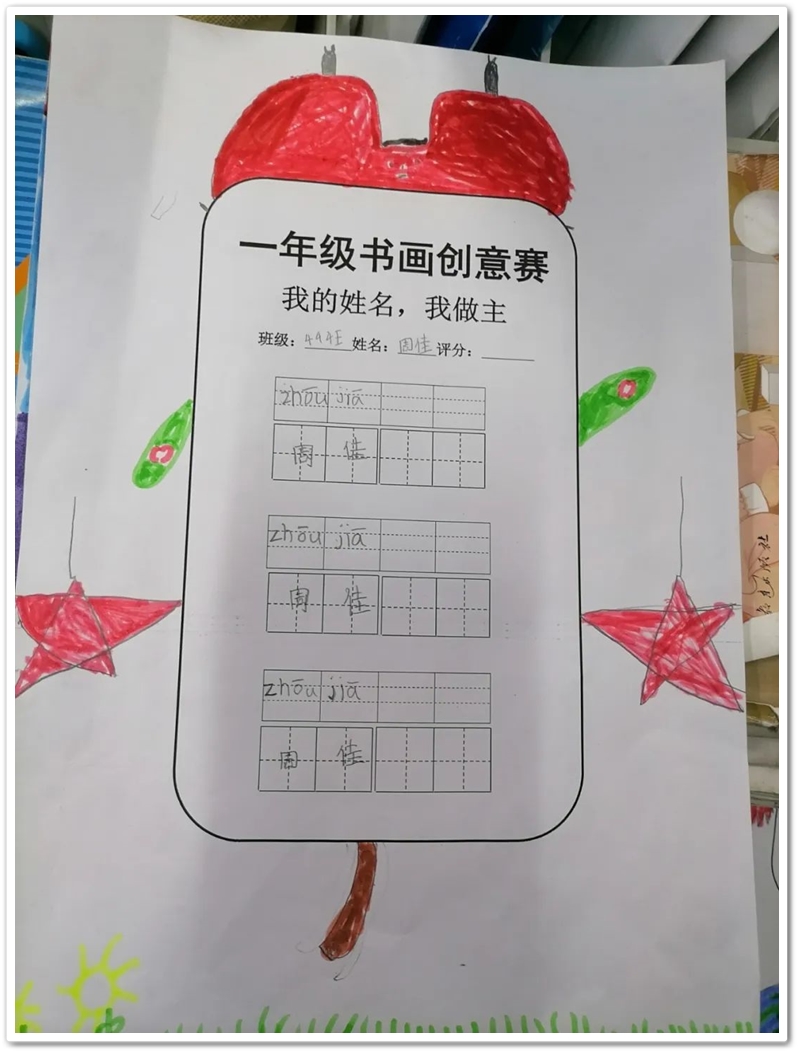 一年级书画创意赛
我的姓名，我做主
班级： 姓名：周佳 评分：
zhōu jiā
周 佳
zhōu jiā
周 佳
zhōu jiā
周 佳